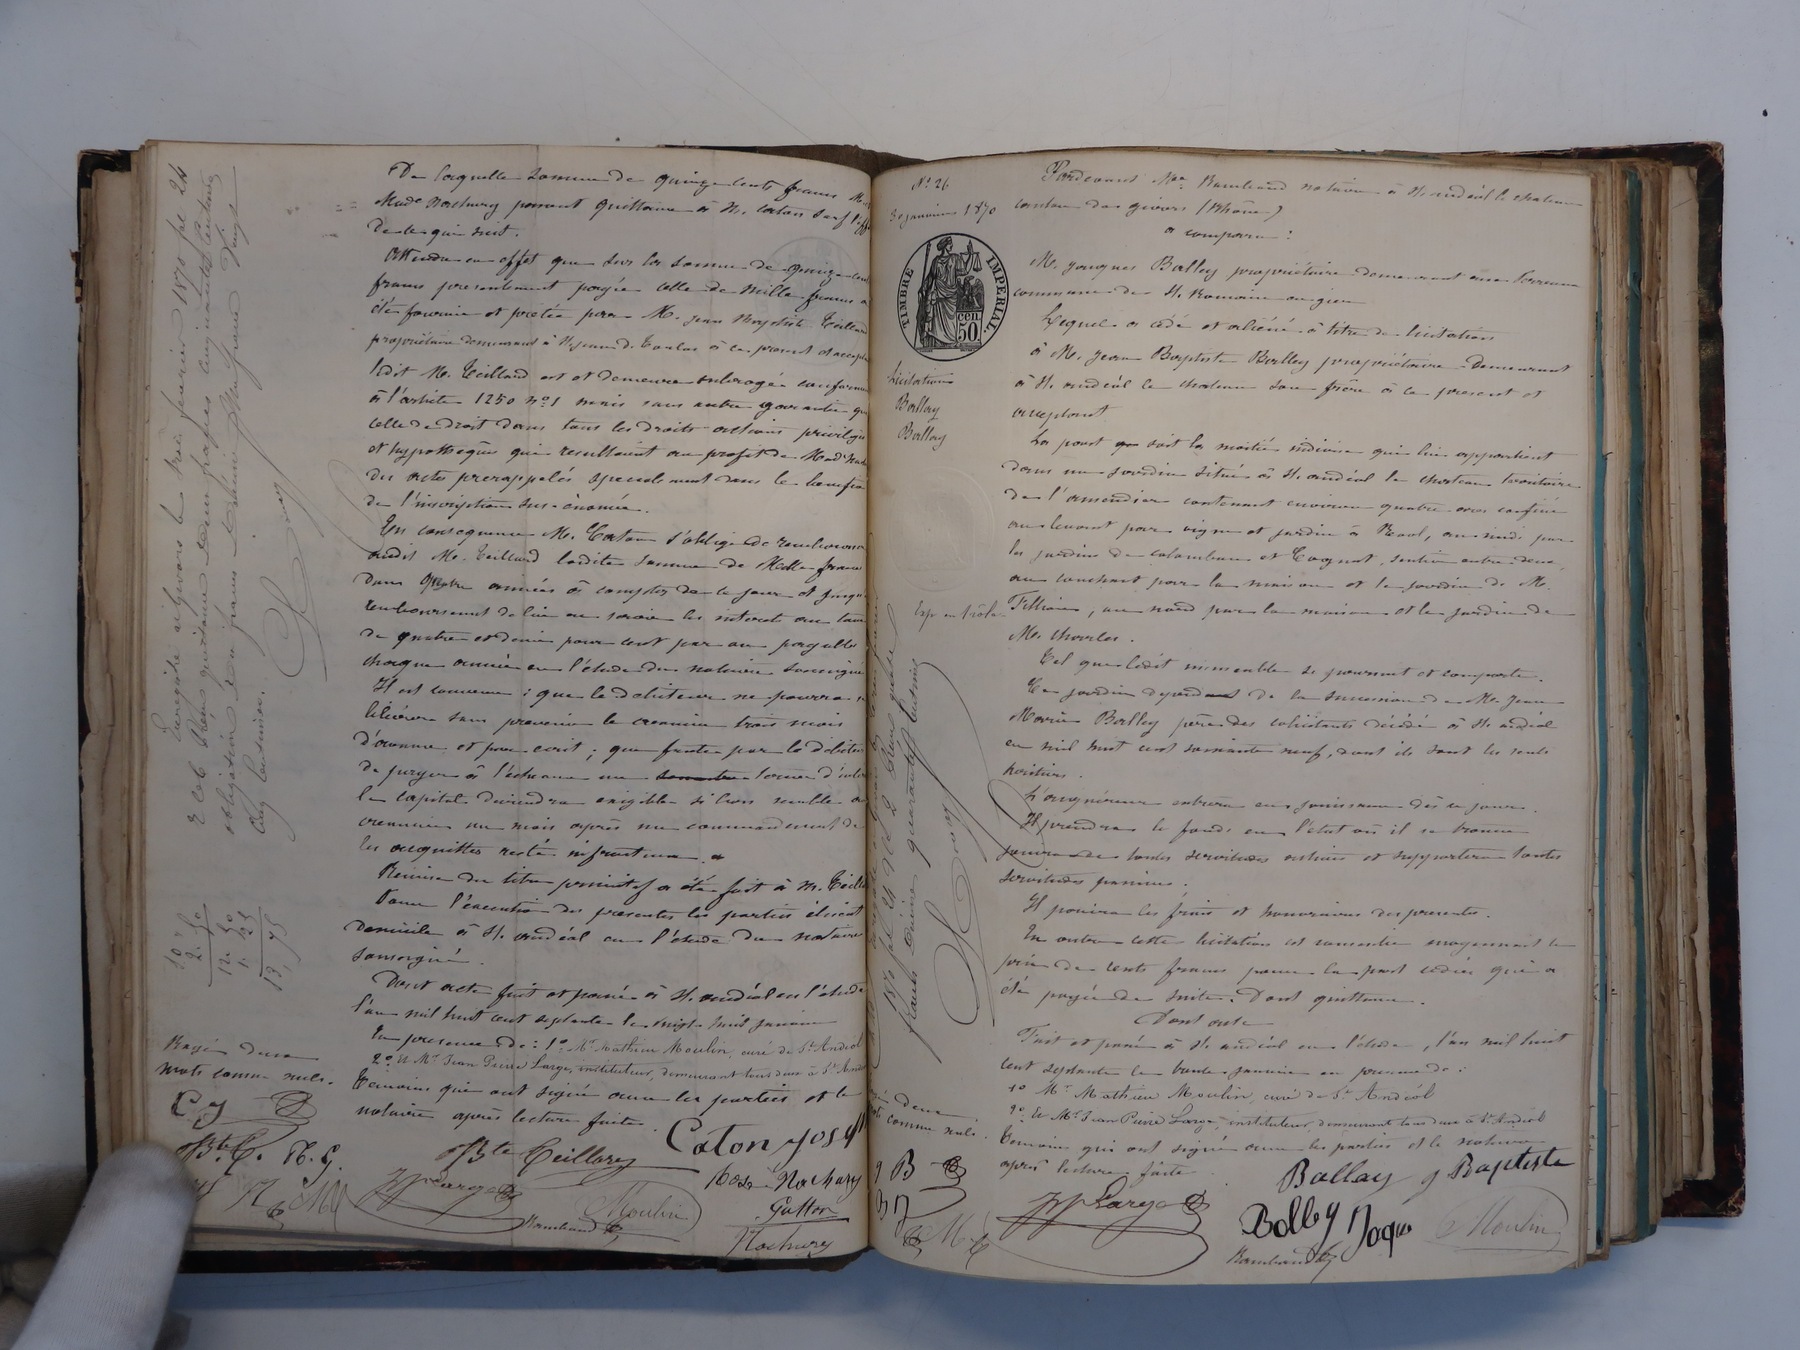 De laquelle somme de quinze cents francs M. et
Made Nachury passent quittance à M. Caton sauf l'effet
de ce qui suit.
Attendu en effet que sur la somme de quinze cents
francs presentement payée celle de mille francs a
été fournie et prêtée par M. Jean Baptiste Teillard
propriétaire demeurant à St Jean de Toulas à ce present et acceptant
ledit M. Teillard est et demeure subrogé conformement
à l'article 1250 n°1 mais sans autre garantie que
celle de droit dans tous les droits actions privilèges
et hypothèques qui resultaient au profit de Made
des actes prerappelés specialement dans le benefice
de l'inscription sus-énoncée.
En consequence M. Caton s'oblige de rembourser
audit M. Teillard ladite somme de Mille francs
dans quatre années à compter de ce jour et jusqu'au
remboursement de lui en servir les interets au taux
de quatre et demi pour cent par an payables
chaque année en l'étude du notaire soussigné
Il est convenu : que le debiteur ne pourra se
libérer sans prevenir le creancier trois mois
d'avance et par écrit ; que faute par le debiteur
de payer à l'écheance un terme d'interet
le capital deviendra exigible si bon semble au
creancier un mois après un commandement de
les acquitter resté infructueux.
Remise du titre primitif a été fait à M. Teillard
Pour l'éxecution des presentes les parties élisent
domicile à St. andéol en l'étude du notaire
soussigné.
Dont acte fait et passé à St. andéol en l'étude
l'an mil huit cent septante le vingt huit janvier
En presence de : 1° Mr Mathieu Moulin, curé de St Andéol
2° et Mr Jean Pierre Large, instituteur, demeurant tous deux à St Andéol
temoins qui ont signé avec les parties et le
notaire après lecture faite.
Caton Josep
JBte Teillard
Rose Nachury
Gutton
JPLarge
Moulin
Rambaud
Nachury
Enregistré à Givors le trois fevrier 1870 fol 24
obligation
cinq centimes.
10 "
2. 50
12 50
1. 25
13, 75
Rayé deux
mots comme nuls.
C J
JBte T. R. G.
N
M
N° 26
30 janvier 1870
TIMBRE IMPERIAL.
50 cen
Licitation
Ballay
Ballay
Exp en 1 rôle
Pardevant Mre Rambaud notaire à St. andéol le chateau
canton de givors (Rhône)
a comparu :
M. Jacques Ballay propriétaire demeurant
commune de St. Romain en gier
Lequel a cédé et aliéné à titre de licitation
à M. Jean Baptiste Ballay propriétaire demeurant
à St. andéol le chateau son frère à ce present et
acceptant
La part soit la moitié indivise qui lui appartient
dans un jardin situé à St. andéol le chateau territoire
de l'amendier contenant environ quatre ares confiné
au levant par vigne et jardin à Raol, au midi par
les jardins de colomban et Cognat, sentier entre deux,
au couchant par la maison et le jardin de M.
au nord par la maison et le jardin de
M. Charles.
Tel que ledit immeuble se poursuit et comporte.
Ce jardin depend de la succession de M. Jean
Marie Ballay père des colicitants décédé à St. andéol
en mil huit cent soixante neuf, dont ils sont les seuls
heritiers.
L'acquéreur entrera en jouissance dès ce jour.
Il prendra le fonds en l'état où il se trouve
jouira de toutes servitudes actives et supportera toutes
servitudes passives.
Il paiera les frais et honoraires des presentes.
En outre cette licitation est consentie moyennant le
prix de cents francs pour la part cédée qui a
été payée de suite. Dont quittance.
Dont acte
Fait et passé à St. andéol en l'étude, l'an mil huit
cent septante le trente janvier en presence de :
1° Mr Mathieu Moulin, curé de St Andéol
2° et Mr Jean Pierre Large, instituteur, demeurant tous deux à St Andéol
temoins qui ont signé avec les parties et le notaire
après lecture faite.
Ballay J Baptiste
JPLarge
Bolley Jaque
Moulin
Rambaud
deux
comme nuls.
J B
B J
M.